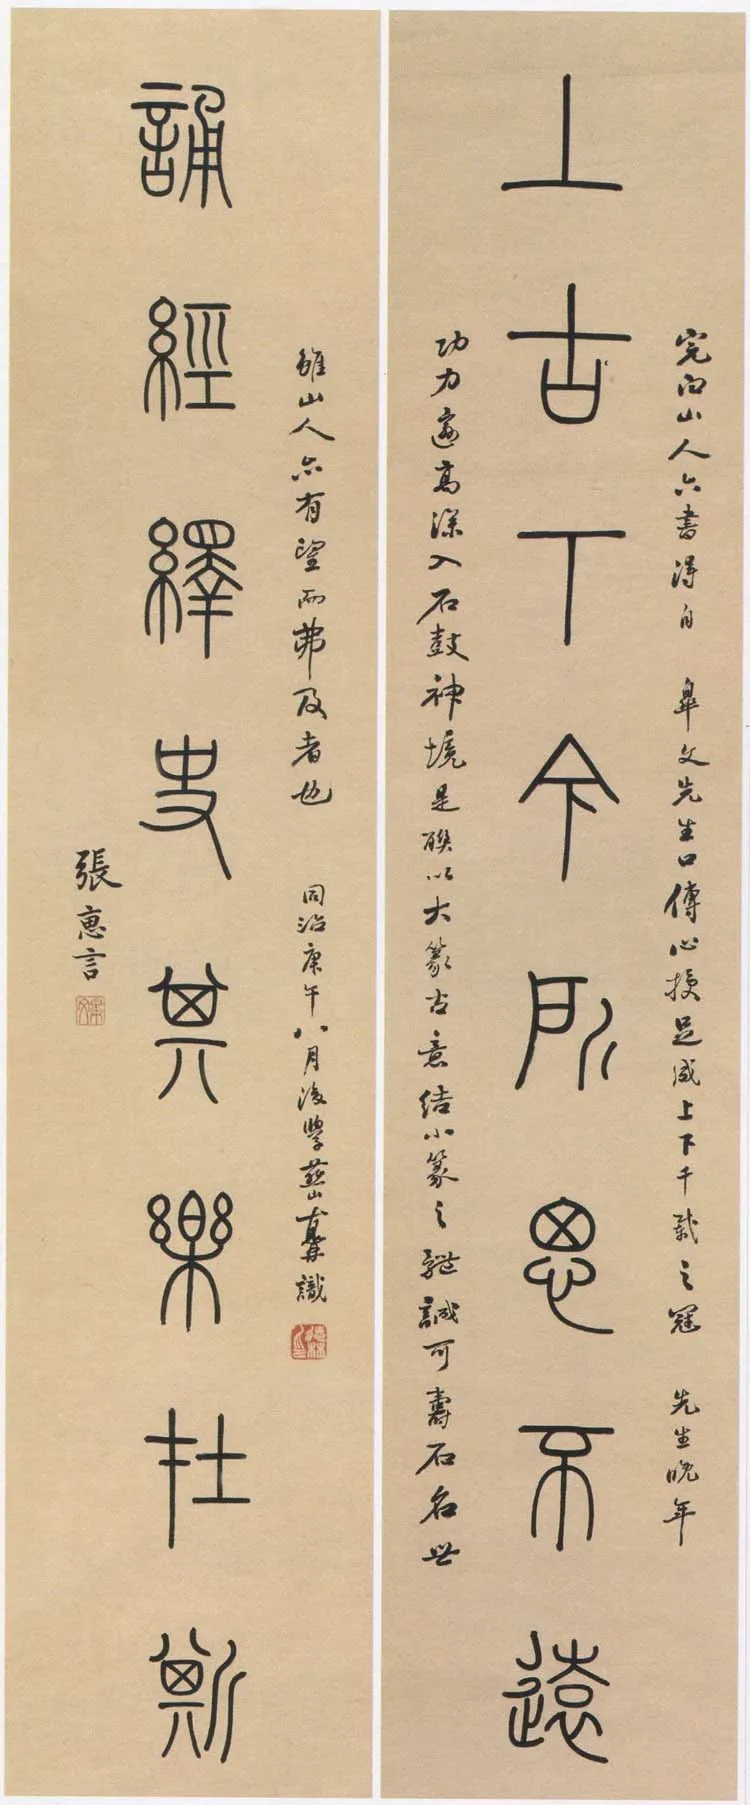 完白山人六書得自 皋文先生口傳心授足成上下千載之冠 先生晚年
上古下今所思不遠
功力高深入石鼓神境是聯以大篆古意結小篆之體誠可壽石名世
雖山人亦有望而弗及者也 同治庚午八月後學燕山識
誦經繹史其樂在斯
張惠言